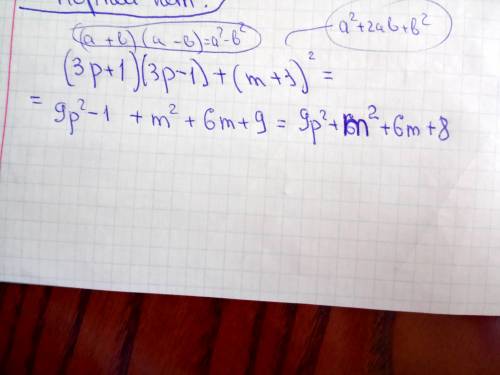 (a + b)(a - b) = a² - b²
a² + 2ab + b²
(3p+1)(3p-1) + (m+3)² =
= 9p² - 1 + m² + 6m + 9 = 9p² + m² + 6m + 8